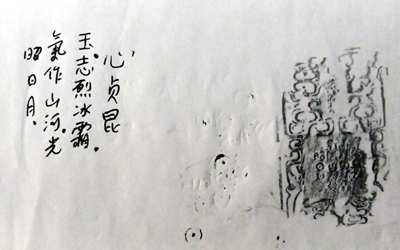 心贞昆
玉.志烈冰霜.
氣作山河.光
昭日月.